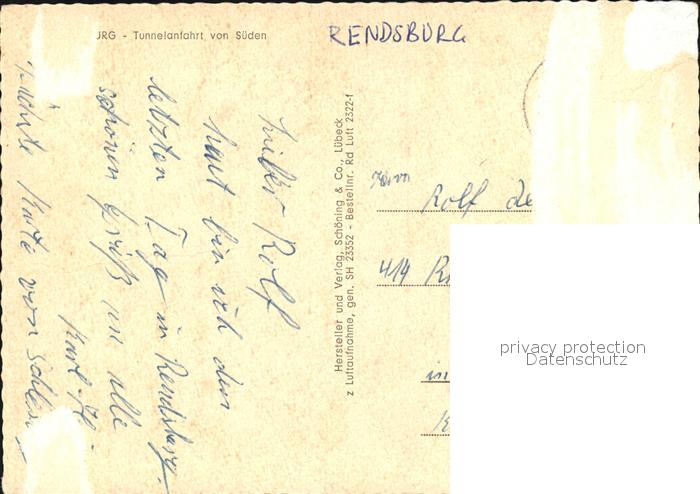 JRG - Tunnelanfahrt von Süden
RENDSBURG
Lieber Rolf
haut bin ich den
letzten Tag in Rendsburg.
schönen Gruß an alle
Karl-H.
nächste Karte von Schlesw
Hersteller und Verlag, Schöning & Co., Lübeck
z Luftaufnahme, gen. SH 23352 - Bestellnr. Rd Luft 2322-f
Herrn
Rolf De
414
in
privacy protection
Datenschutz